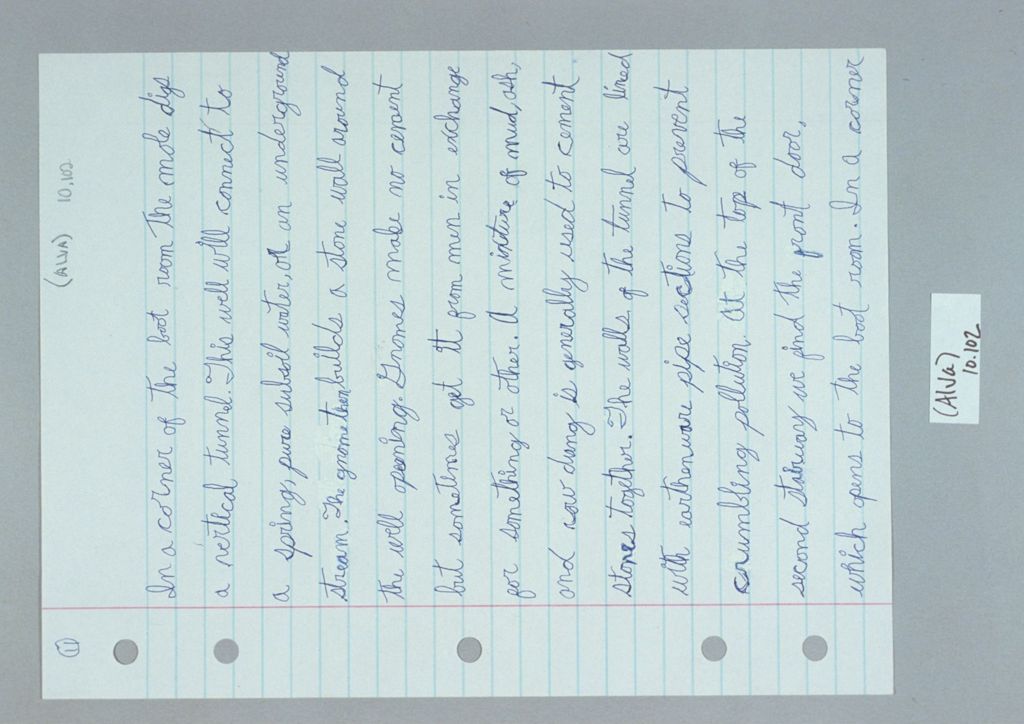 (11)
(ALVA) 10.102
In a corner of the boot room the mole digs
a vertical tunnel. This well will connect to
a spring, pure subsoil water, or an underground
stream. The gnome then builds a stone wall around
the well opening. Gnomes make no cement
but sometimes get it from men in exchange
for something or other. A mixture of mud, ash,
and cow dung is generally used to cement
stones together. The walls of the tunnel are lined
with earthenware pipe sections to prevent
crumbling pollution. At the top of the
second stairway we find the front door,
which opens to the boot room. In a corner
(Alva)
10.102